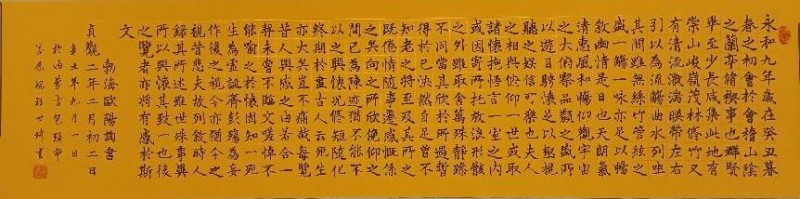 永和九年歲在癸丑暮
春之初會於會稽山陰
之蘭亭脩稧事也群賢
畢至少長咸集此地有
崇山峻嶺茂林脩竹又
有清流激湍暎帶左右
引以為流觴曲水列坐
其間雖無絲竹管絃之
盛一觴一詠亦足以暢
敘幽情是日也天朗氣
清惠風和暢仰觀宇宙
之大俯察品類之盛所
以遊目騁懷足以極視
聽之娛信可樂也夫人
之相與俯仰一世或取
諸懷抱悟言一室之內
或因寄所託放浪形骸
之外雖取舍萬殊靜躁
不同當其欣於所遇暫
得於己快然自足曾不
知老之將至及其所之
既倦情隨事遷感慨係
之矣向之所欣俛仰之
間已為陳迹猶不能不
以之興懷況脩短隨化
終期於盡古人云死生
亦大矣豈不痛哉每覽
昔人興感之由若合一
契未嘗不臨文嗟悼不
能喻之於懷固知一死
生為虛誕齊彭殤為妄
作後之視今亦猶今之
視昔悲夫故列敘時人
錄其所述雖世殊事異
所以興懷其致一也後
之覽者亦將有感於斯
文
渤海歐陽詢書
貞觀二年二月初二日
辛丑年九月一日